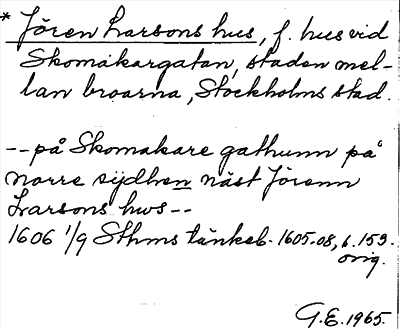 * Jören Larsons hus, f. hus vid
Skomakargatan, staden mel-
lan broarna, Stockholms stad.
--på Skomakare gathunn på
norre sijdhen näst Jörenn
Larsons hws--
1606 1/9 Sthms tänkeb. 1605-08, s. 153.
orig.
G.E. 1965.